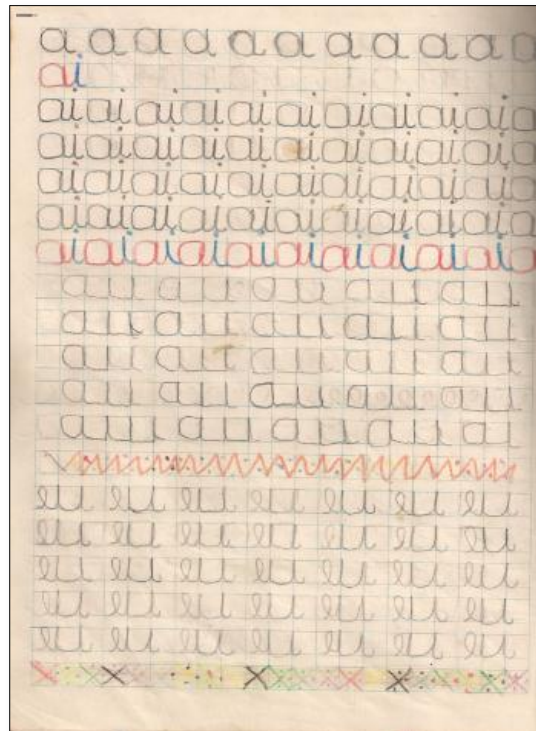 a a a a a a a a a a a
ai
ai ai ai ai ai ai ai ai ai ai a
ai ai ai ai ai ai ai ai ai ai a
ai ai ai ai ai ai ai ai ai ai a
ai ai ai ai ai ai ai ai ai ai a
ai ai ai ai ai ai ai ai ai ai a
au au au au au
au au au au au
au au au au au
au au au au au
au au au au au
eu eu eu eu eu eu eu
eu eu eu eu eu eu eu
eu eu eu eu eu eu eu
eu eu eu eu eu eu eu
eu eu eu eu eu eu eu